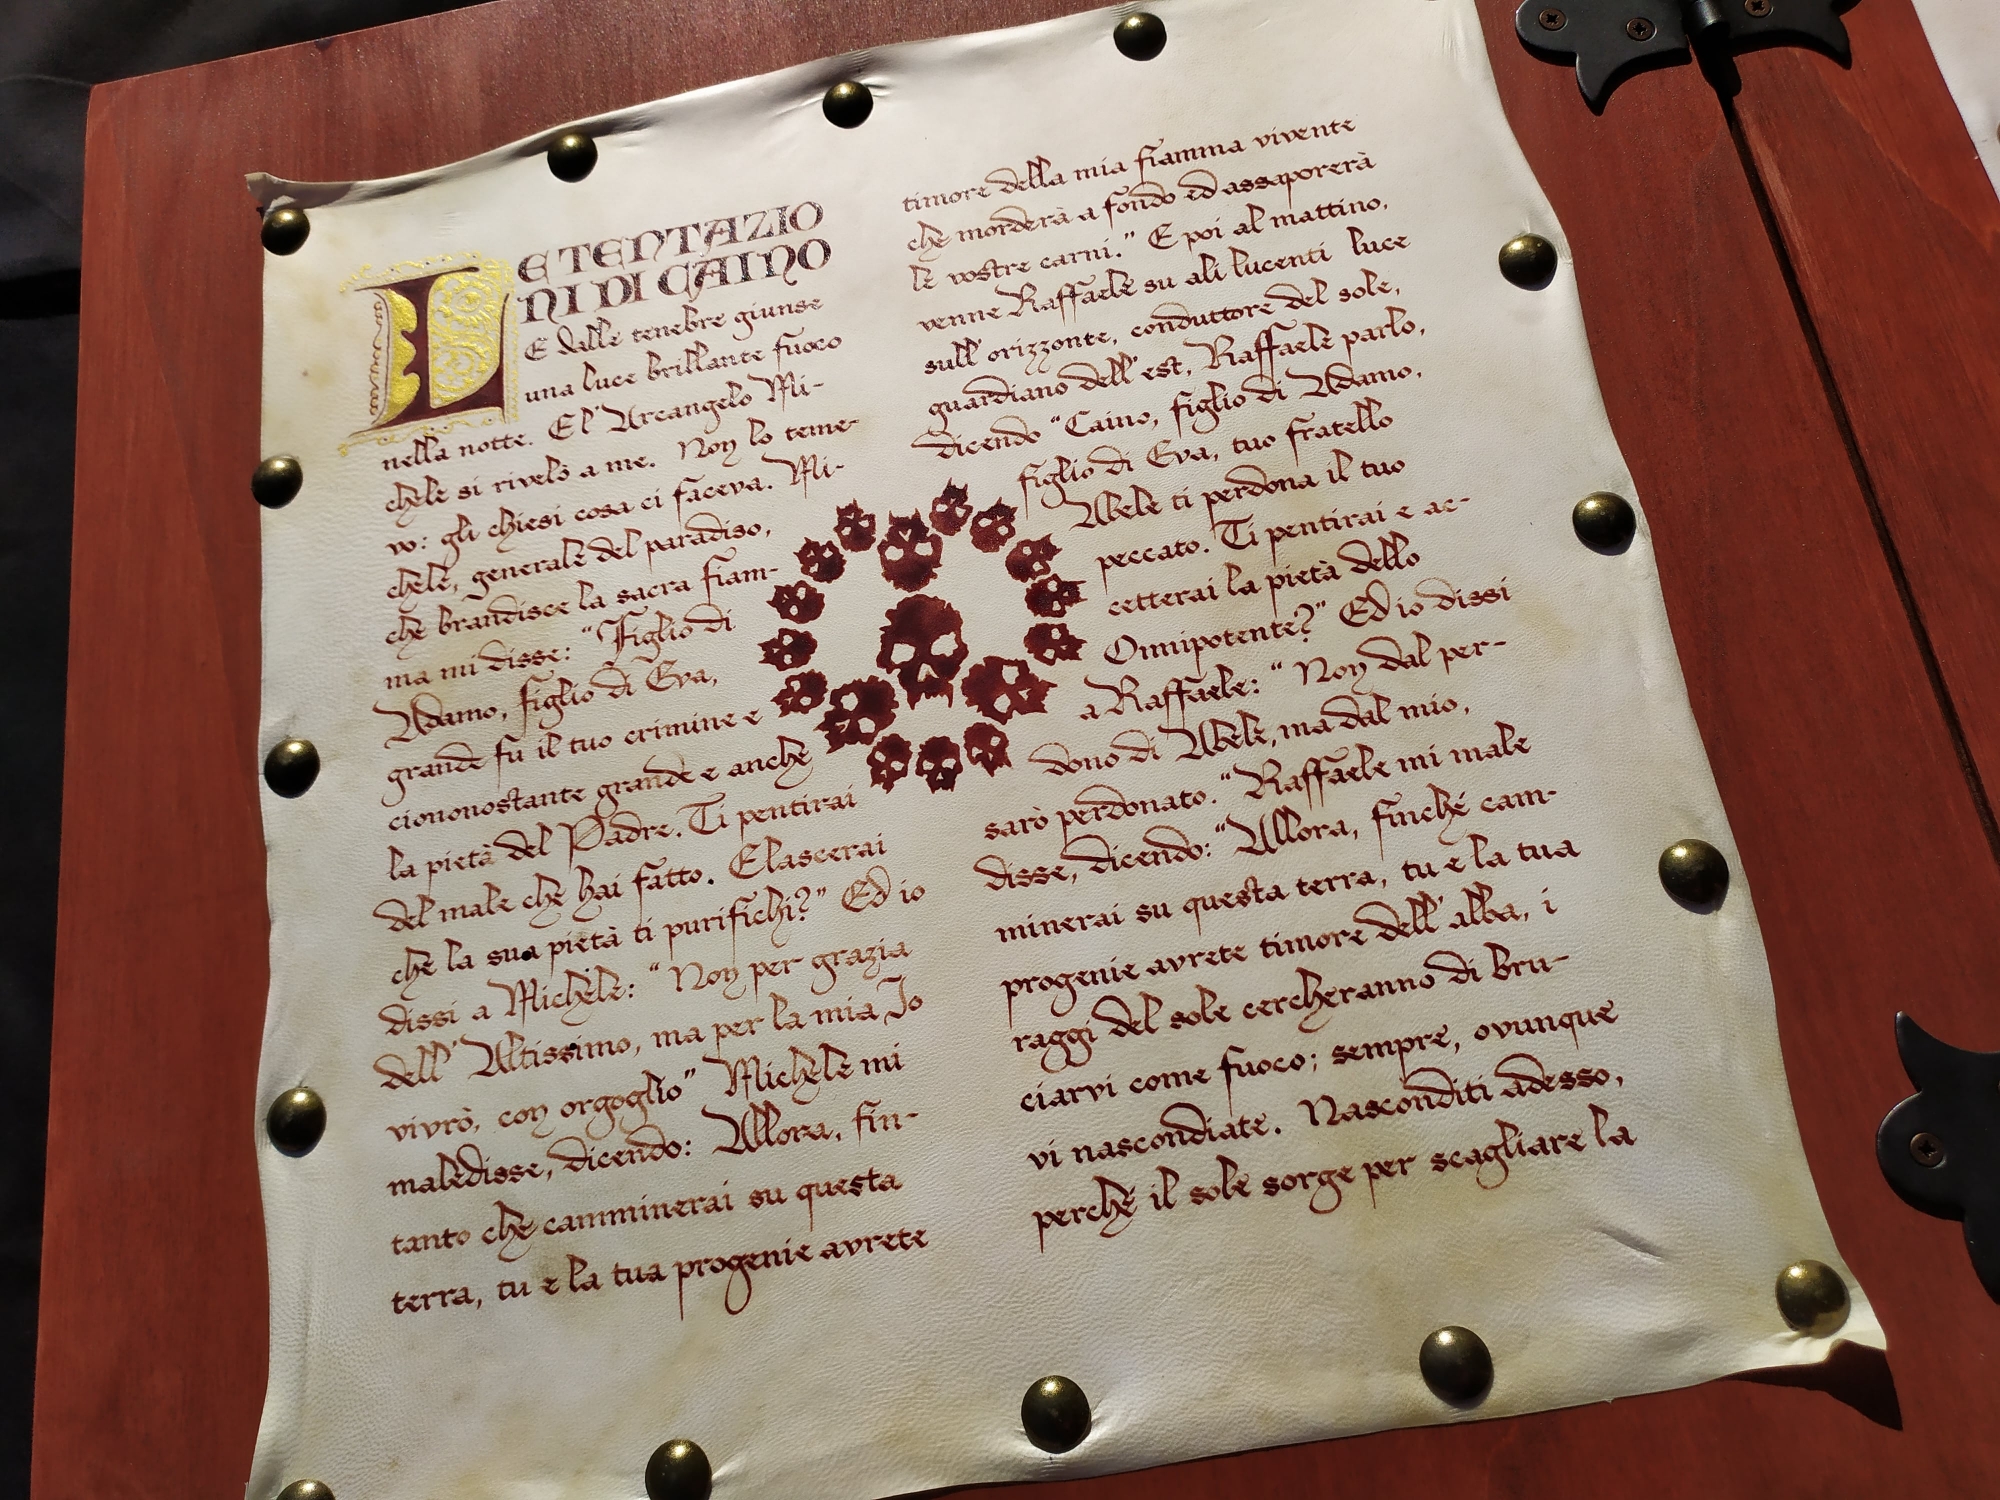 LE TENTAZIO
NI DI CAINO
E dalle tenebre giunse
una luce brillante fuoco
nella notte. E l'Arcangelo Mi-
chele si rivelò a me. Non lo teme-
vo: gli chiesi cosa ci faceva. Mi-
chele, generale del paradiso,
che brandisce la sacra fiam-
ma mi disse: "Figlio di
Adamo, figlio di Eva,
grande fu il tuo crimine e
ciononostante grande e anche
la pietà del Padre. Ti pentirai
del male che hai fatto. E lascerai
che la sua pietà ti purifichi?" Ed io
dissi a Michele: "Non per grazia
dell'Altissimo, ma per la mia Io
vivrò, con orgoglio" Michele mi
maledisse, dicendo: Allora, fin-
tanto che camminerai su questa
terra, tu e la tua progenie avrete
timore della mia fiamma vivente
che morderà a fondo ed assaporerà
le vostre carni." E poi al mattino,
venne Raffaele su ali lucenti luce
sull'orizzonte, conduttore del sole,
guardiano dell'est, Raffaele parlo,
dicendo "Caino, figlio di Adamo,
figlio di Eva, tuo fratello
Abele ti perdona il tuo
peccato. Ti pentirai e ac-
cetterai la pietà dello
Omnipotente?" Ed io dissi
a Raffaele: "Non dal per-
dono di Abele, ma dal mio,
sarò perdonato." Raffaele mi male
disse, dicendo: "Allora, finché cam-
minerai su questa terra, tu e la tua
progenie avrete timore dell'alba, i
raggi del sole cercheranno di bru-
ciarvi come fuoco; sempre, ovunque
vi nascondiate. Nasconditi adesso,
perché il sole sorge per scagliare la